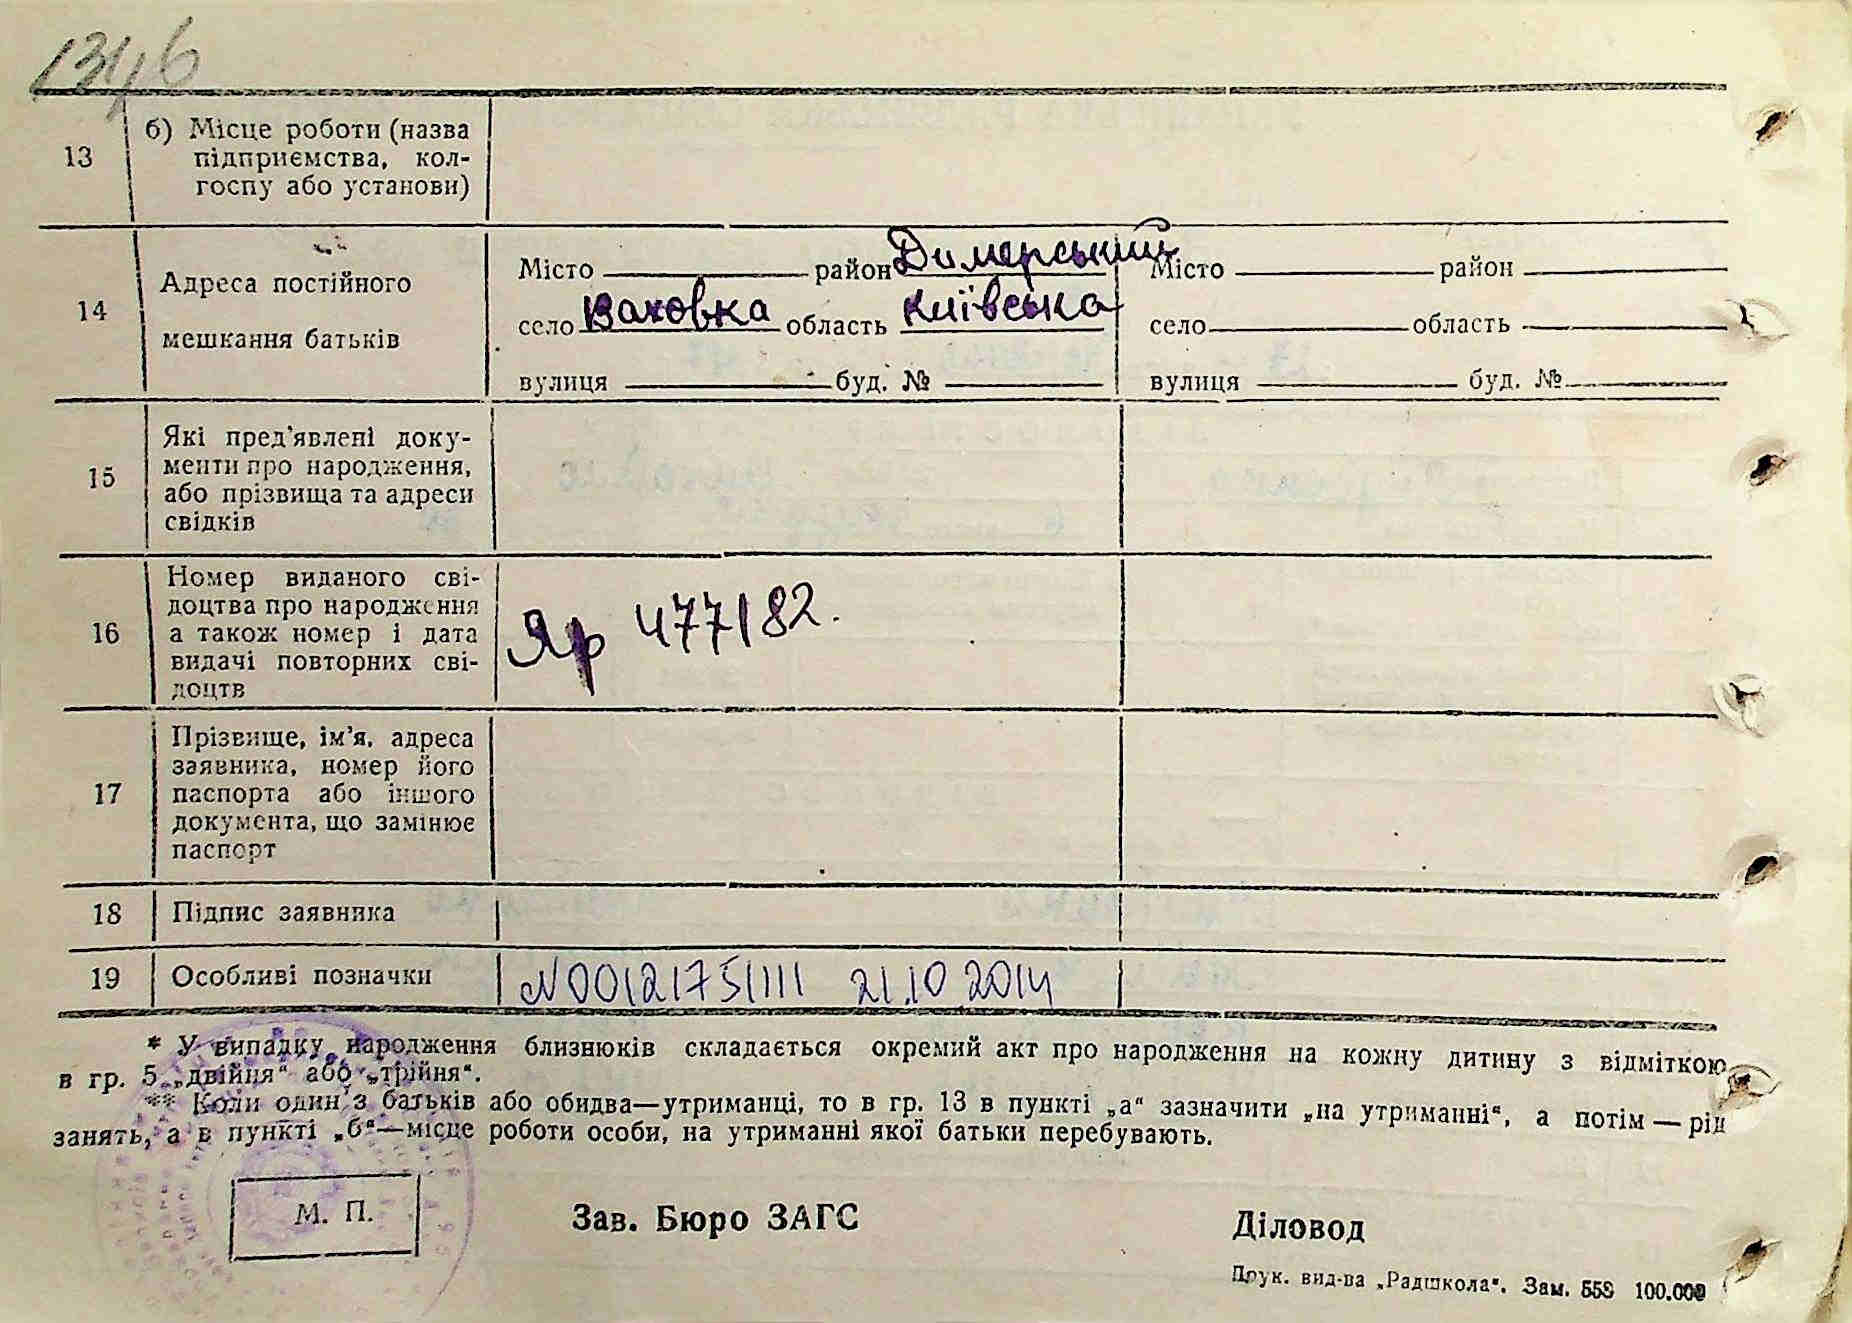 1346
13 б) Місце роботи (назва
підприємства, кол-
госпу або установи)
14 Адреса постійного
мешкання батьків
Місто район Димерський Місто район
село Ваховка область Київська село область
вулиця буд. № вулиця буд. №
15 Які пред'явлені доку-
менти про народження,
або прізвища та адреси
свідків
16 Номер виданого сві-
доцтва про народження
а також номер і дата
видачі повторних сві-
доцтв
Яр 477182.
17 Прізвище, ім'я, адреса
заявника, номер його
паспорта або іншого
документа, що замінює
паспорт
18 Підпис заявника
19 Особливі позначки N00121751111 21.10.2014
* У випадку народження близнюків складається окремий акт про народження на кожну дитину з відміткою
в гр. 5 „двійня“ або „трійня“.
** Коли один з батьків або обидва—утриманці, то в гр. 13 в пункті „а“ зазначити „на утриманні“, а потім — рід
занять, а в пункті „б“—місце роботи особи, на утриманні якої батьки перебувають.
М. П.
Зав. Бюро ЗАГС
Діловод
Друк. вид-ва „Радшкола“. Зам. 558 100.000